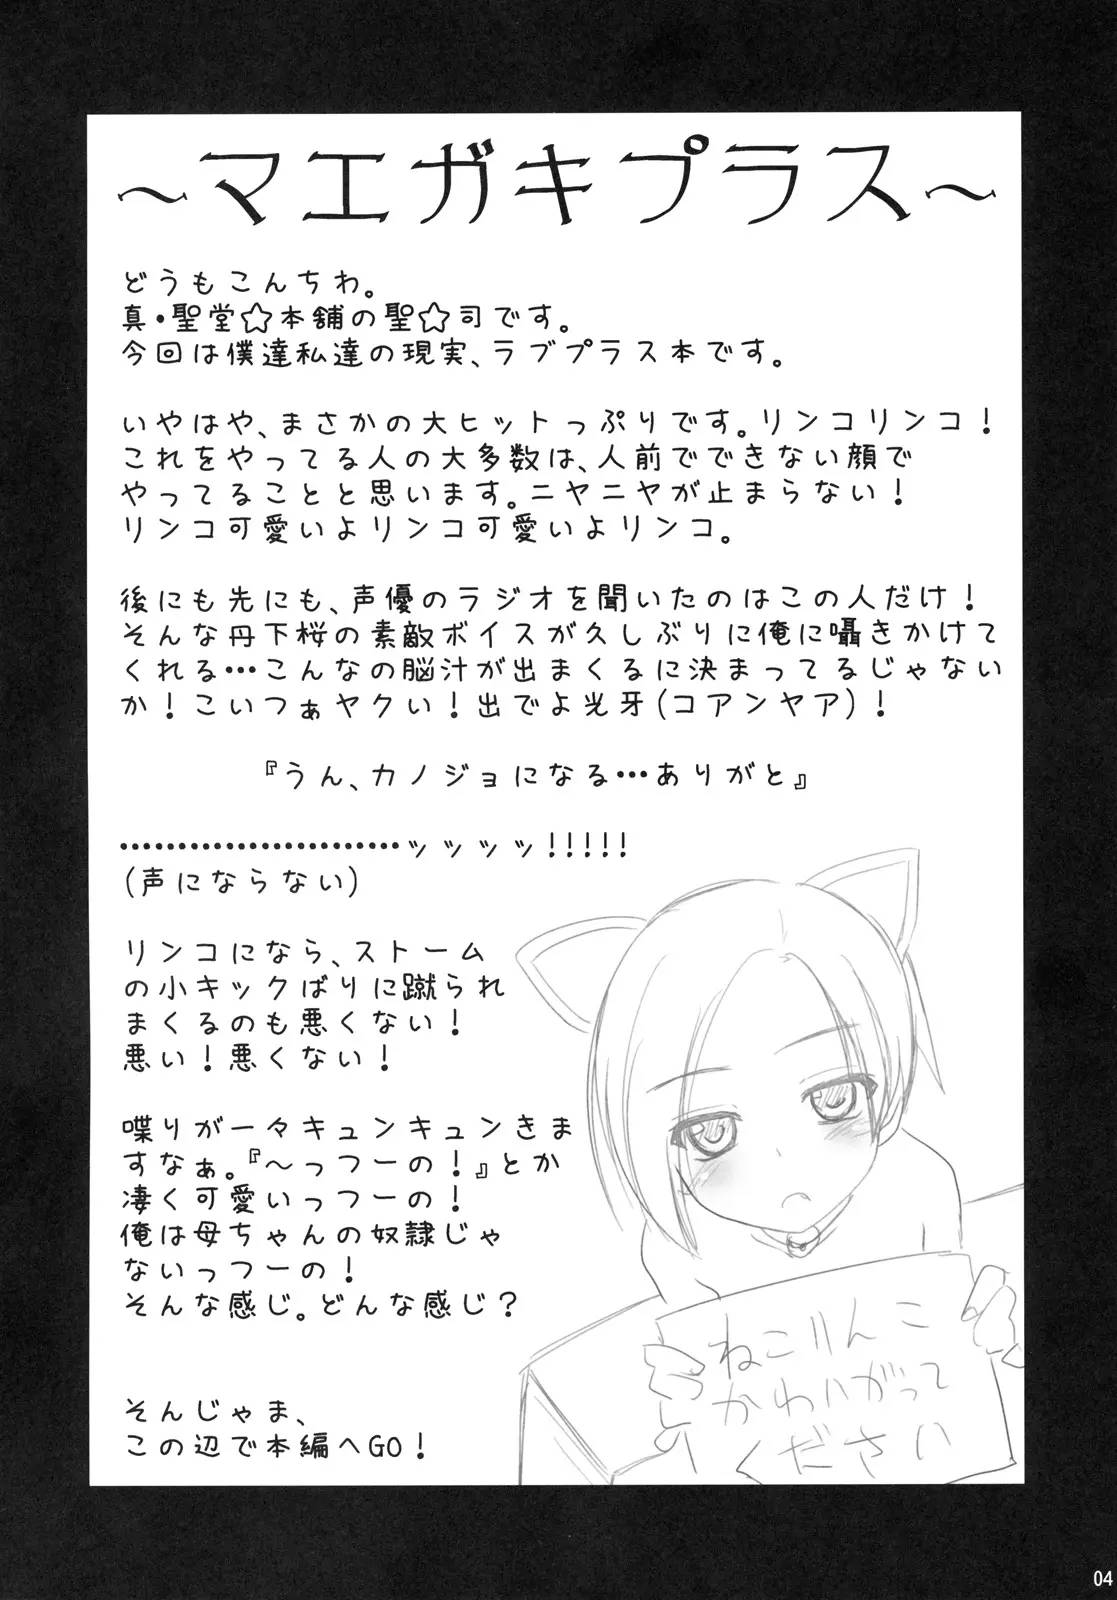 ～マエガキプラス～
どうもこんちわ。
真・聖堂☆本舗の聖☆司です。
今回は僕達私達の現実、ラブプラス本です。
いやはや、まさかの大ヒットっぷりです。リンコリンコ！
これをやってる人の大多数は、人前でできない顔で
やってることと思います。ニヤニヤが止まらない！
リンコ可愛いよリンコ可愛いよリンコ。
後にも先にも、声優のラジオを聞いたのはこの人だけ！
そんな丹下桜の素敵ボイスが久しぶりに俺に囁きかけて
くれる…こんなの脳汁が出まくるに決まってるじゃない
か！こいつぁヤクい！出でよ光牙(コアンヤア)！
『うん、カノジョになる…ありがと』
……………………ッッッッ!!!!!
(声にならない)
リンコになら、ストーム
の小キックばりに蹴られ
まくるのも悪くない！
悪い！悪くない！
喋りが一々キュンキュンきま
すなぁ。『～っつーの！』とか
凄く可愛いっつーの！
俺は母ちゃんの奴隷じゃ
ないっつーの！
そんな感じ。どんな感じ？
そんじゃま、
この辺で本編へGO！
ねこりんこ
かわいがって
ください
04